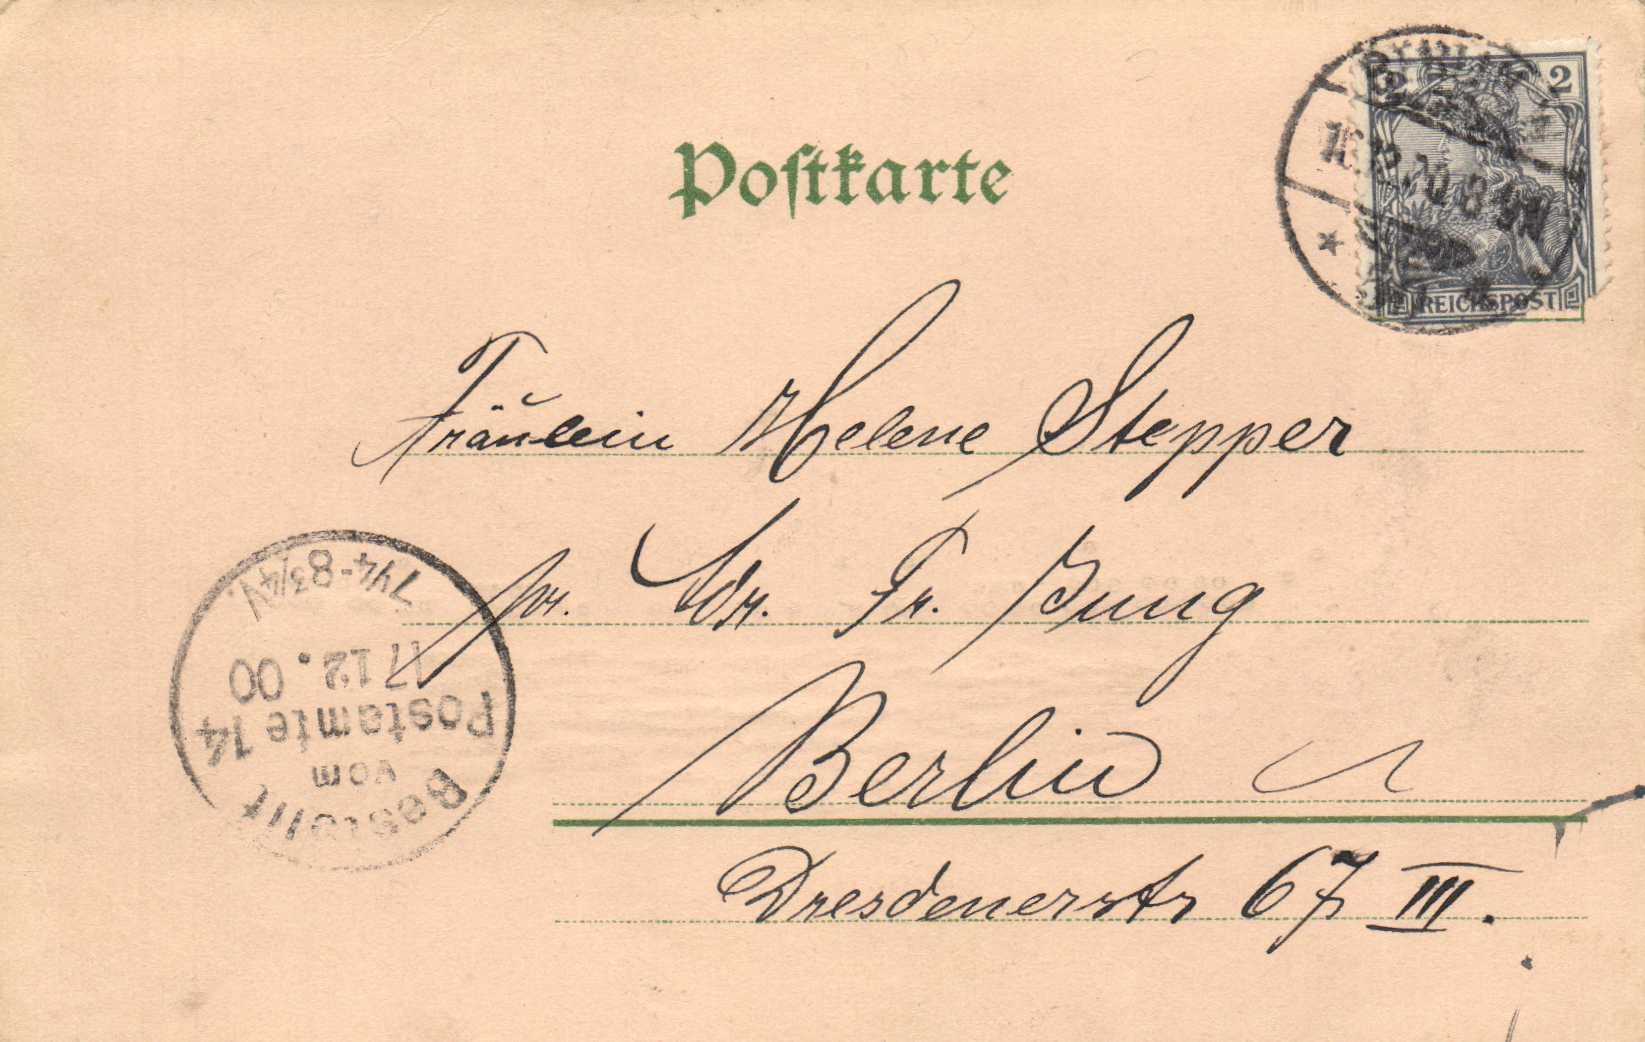 Postkarte
2
REICHSPOST
Fräulein Helene Stepper
pr. Adr. Fr. Bung
Berlin
Dresdenerstr 67 III.
Bestellt
vom
Postamte 14
17 12. 00
7 1/4-8 3/4 N.